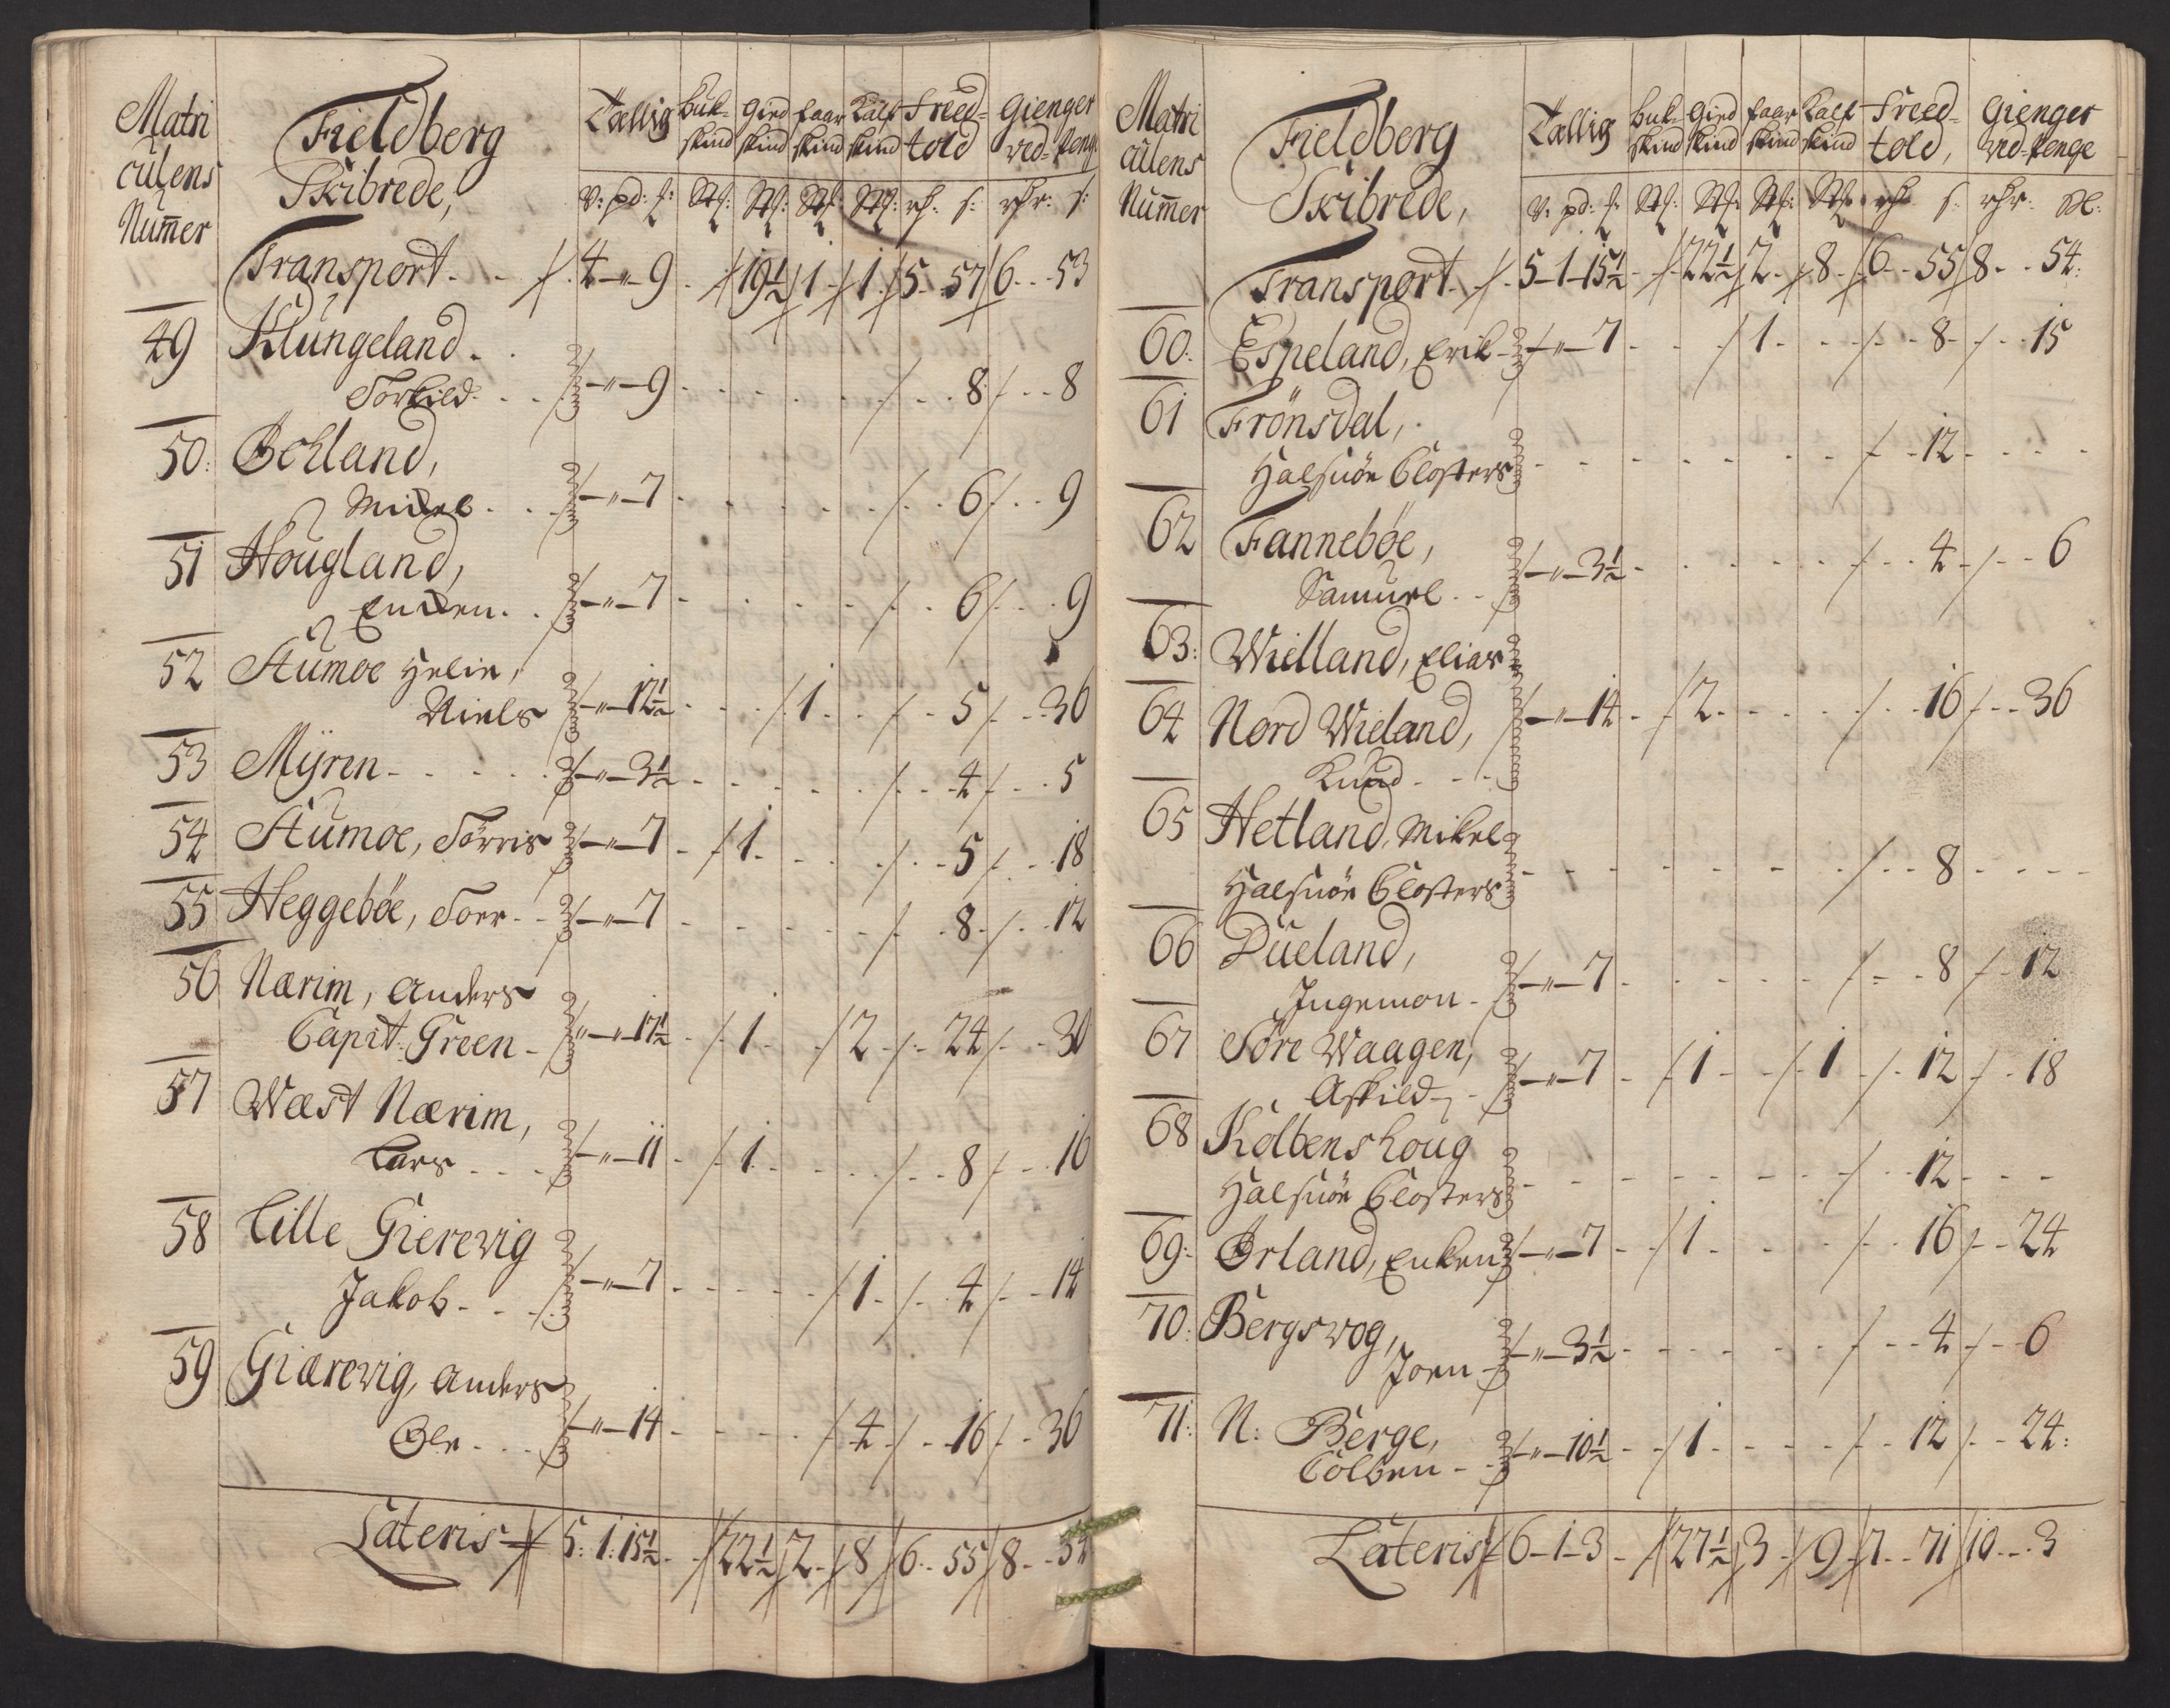 Matri
culens
Nummer
Fieldberg
Skibrede,
Tallig Buk- Gied faar Kalf Freed- Gienger
skind skind skind skind told ved-Penge
V: pd: S:
Transport. 4 - " 9 19½ 1 1 5 57 6 53
49 Klungeland.
Torkild. - " - 9 8 8
50: Bchland,
Mikel - " - 7 6 9
51 Hougland,
Enken. - " - 7 6 9
52 Aumoe Helie,
Niels - " - 12½ 1 5 36
53 Myren - " - 3½ 4 5
54 Aumoe, Torris - " - 7 1 5 18
55 Heggebøe, Toer - " - 7 8 12
56 Nærim, Anders
Capit. Green - " - 17½ 1 2 24 30
57 Wæst Nærim,
Lars - " - 11 1 8 16
58 Lille Gierevig
Jakob - " - 7 1 4 14
59 Giærevig, Anders
Ole - " - 14 4 16 36
Lateris 5: 1: 15½ 22½ 2 8 6 55 8 54
Matri
culens
Nummer
Fieldberg
Skibrede,
Tallig Buk- Gied faar Kalf Freed- Gienger
skind skind skind skind told, ved-Penge
V: pd: S:
Transport. 5 - 1 - 15½ 22½ 2 8 6 55 8 54:
60: Espeland, Erik - " - 7 1 8 15
61 Frönsdal,
Halsnöe Closters 12
62 Fannebøe,
Samuel - " - 3½ 4 6
63: Wielland, Elias
64 Nord Wieland, - " - 14 2 16 36
Knud
65 Hetland, Mikel
Halsnöe Closters 8
66 Dueland,
Ingemon - " - 7 8 12
67 Töre Waagen,
Askild - " - 7 1 1 12 18
68 Kolbenshoug
Halsnöe Closters 12
69: Ørland, Enken - " - 7 1 16 24
70: Bergsvog,
Joen - " - 3½ 4 6
71: N: Berge,
Colben - " - 10½ 1 12 24:
Lateris 6 - 1 - 3 27½ 3 9 7 71 10 3